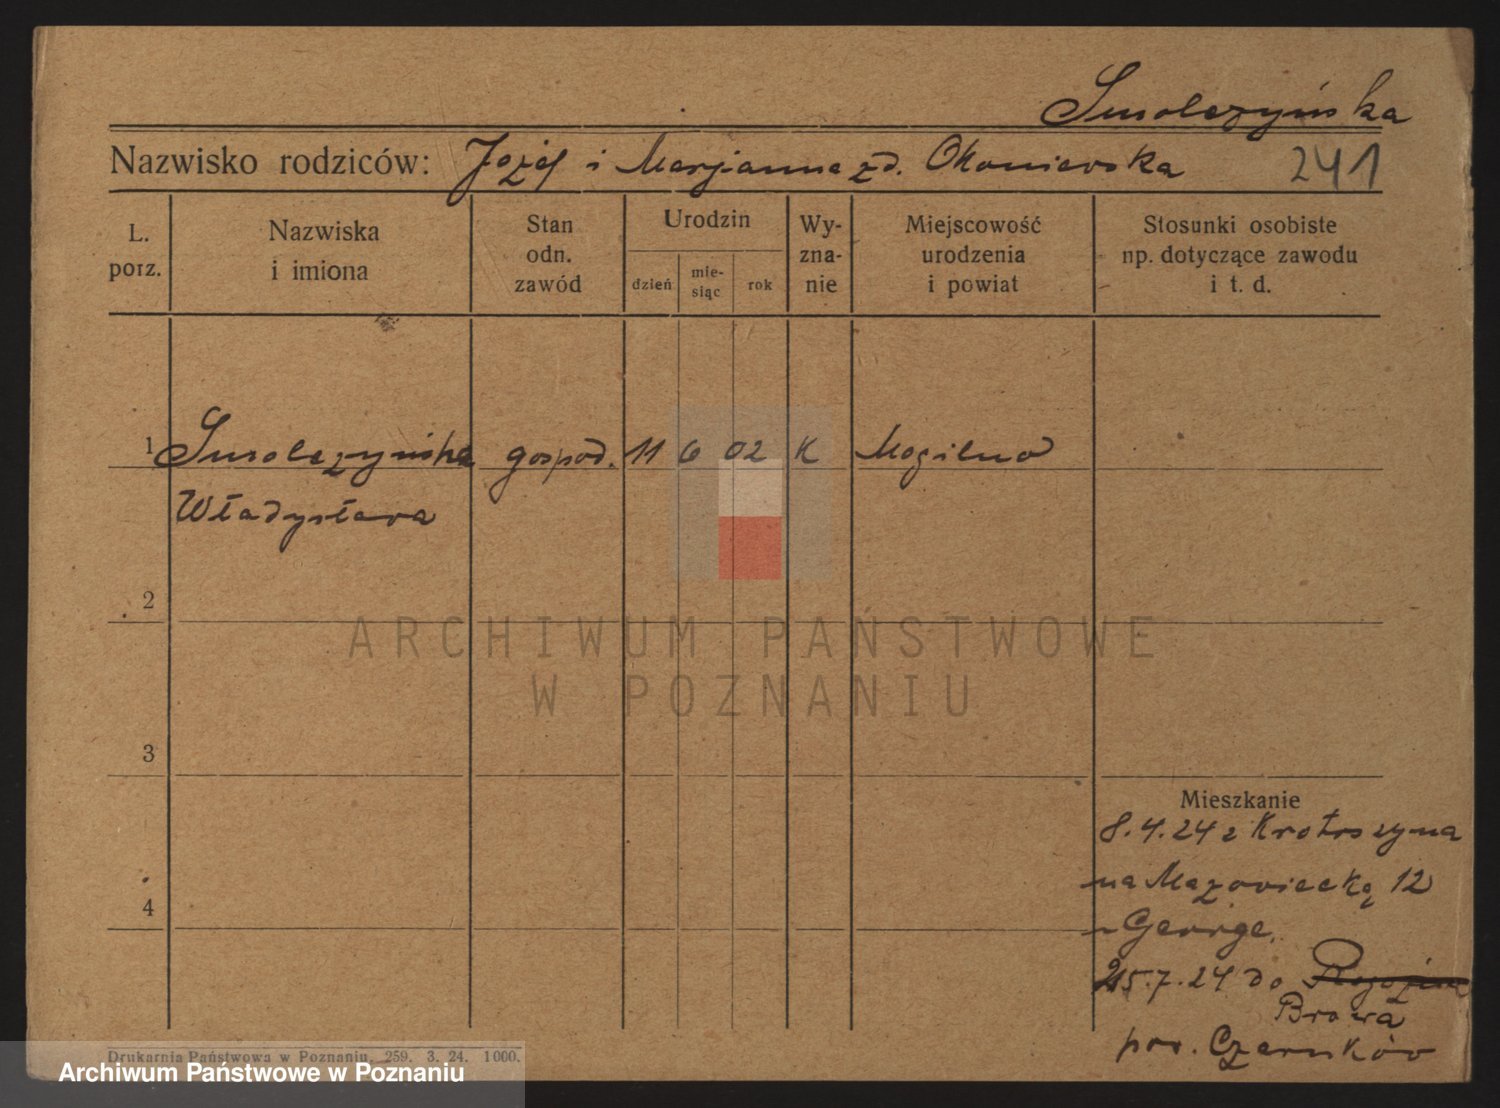 Smolczyńska
Nazwisko rodziców: Józef i Marjanna zd. Okoniewska 241
L. porz.
Nazwiska i imiona
Stan odn. zawód
Urodzin
dzień
mie-
siąc
rok
Wy-
zna-
nie
Miejscowość urodzenia i powiat
Stosunki osobiste np. dotyczące zawodu i t. d.
1 Smolczyńska gospod. 11 6 02 K Mogilno
Władysława
2
3
4
Mieszkanie
8.4.24 z Krotoszyna
na Mazowiecką 12
u George.
25.7.24 do
pow. Czarnków
Drukarnia Państwowa w Poznaniu. 259. 3. 24. 1000.
ARCHIWUM PAŃSTWOWE
W POZNANIU
Archiwum Państwowe w Poznaniu